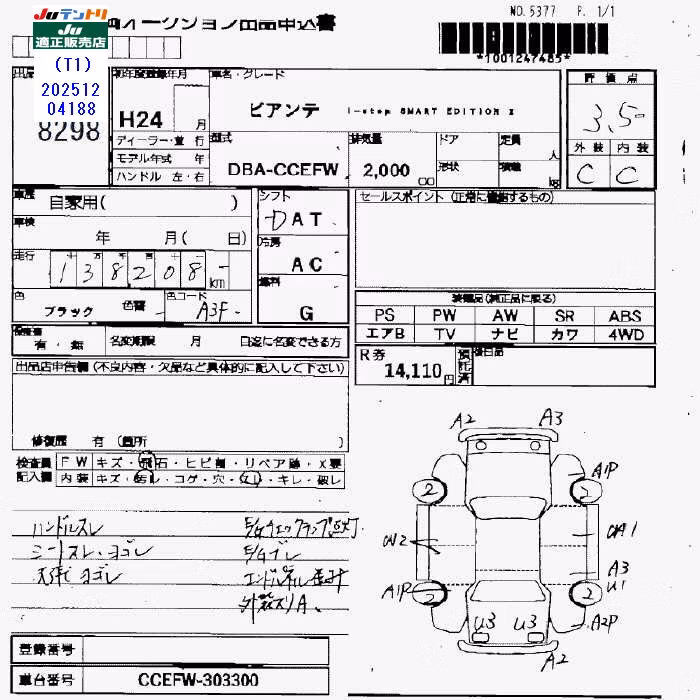 NO.5377 P. 1/1
JUテントリ
JU
適正販売店
オークション出品申込書
*1001247485*
(T1)
202512
04188
出品
8298
初年度登録年月
H24 月
ディーラー・並行
モデル年式 年
ハンドル 左・右
車名・グレード
ビアンテ i-stop SMART EDITION
型式
DBA-CCEFW
排気量
2,000 cc
ドア
形状
定員 人
積載 kg
評価点
3.5
外装 内装
C C
車歴
自家用( )
車検
年 月( 日)
走行
138208 km
色
ブラック
色替
色コード
A3F
シフト
DAT
冷房
AC
燃料
G
セールスポイント(正常に機能するもの)
装備品(純正品に限る)
PS PW AW SR ABS
エアB TV ナビ カワ 4WD
有・無
名変期限 月 日迄に名変できる方
R券
14,110円
預託済
後日品
出品店申告欄(不良内容・欠品など具体的に記入して下さい)
修復歴 有(箇所 )
検査員
記入欄
FW キズ・飛石・ヒビ割・リペア跡・X要
内装 キズ・汚れ・コゲ・穴・スレ・キレ・破レ
ハンドルスレ
シートスレ・ヨゴレ
天張ヨゴレ
E/Gチェックランプ点灯
E/Gブレ
外装スリA
A2 A3
A1P
2 2
A1
A3
U1
A1P
2 2
U3 U3
A2P
A2
登録番号
車台番号
CCEFW-303300